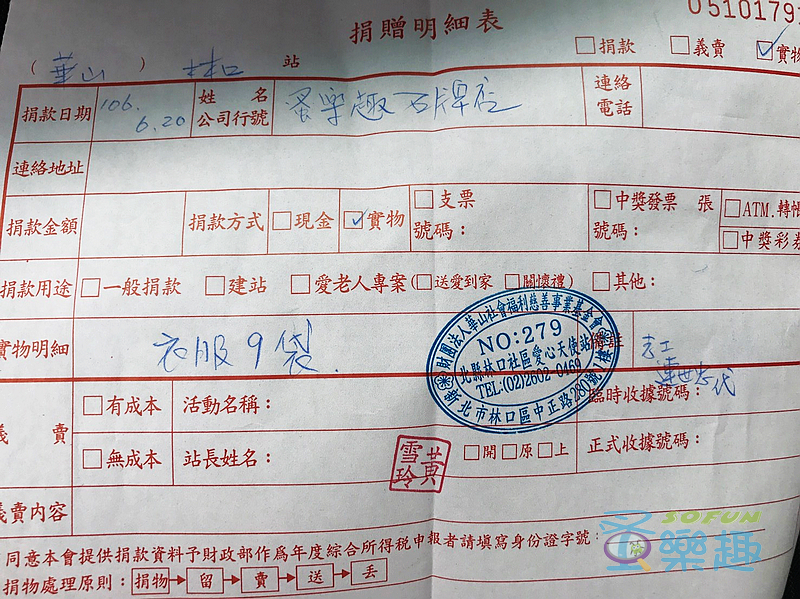 0510179
捐贈明細表
(華山) 林口 站 □捐款 □義賣 ☑實物
捐款日期 106. 6.20 姓名 公司行號 蚤樂趣石牌店 連絡電話
連絡地址
捐款金額 捐款方式 □現金 ☑實物 □支票 號碼： □中獎發票 張 號碼： □ATM.轉帳 □中獎彩券
捐款用途 □一般捐款 □建站 □愛老人專案(□送愛到家 □關懷禮) □其他：
實物明細 衣服9袋 志工
財團法人華山社會福利慈善事業基金會
NO:279
北縣林口社區愛心天使站
TEL:(02)2602-0469
北市林口區中正路280號
義賣 □有成本 活動名稱： 臨時收據號碼： 代
□無成本 站長姓名： 黃雪玲 □開□原□上 正式收據號碼：
義賣內容
同意本會提供捐款資料予財政部作為年度綜合所得稅申報者請填寫身份證字號：
捐物處理原則：捐物→留→賣→送→丟
SOFUN
蚤樂趣